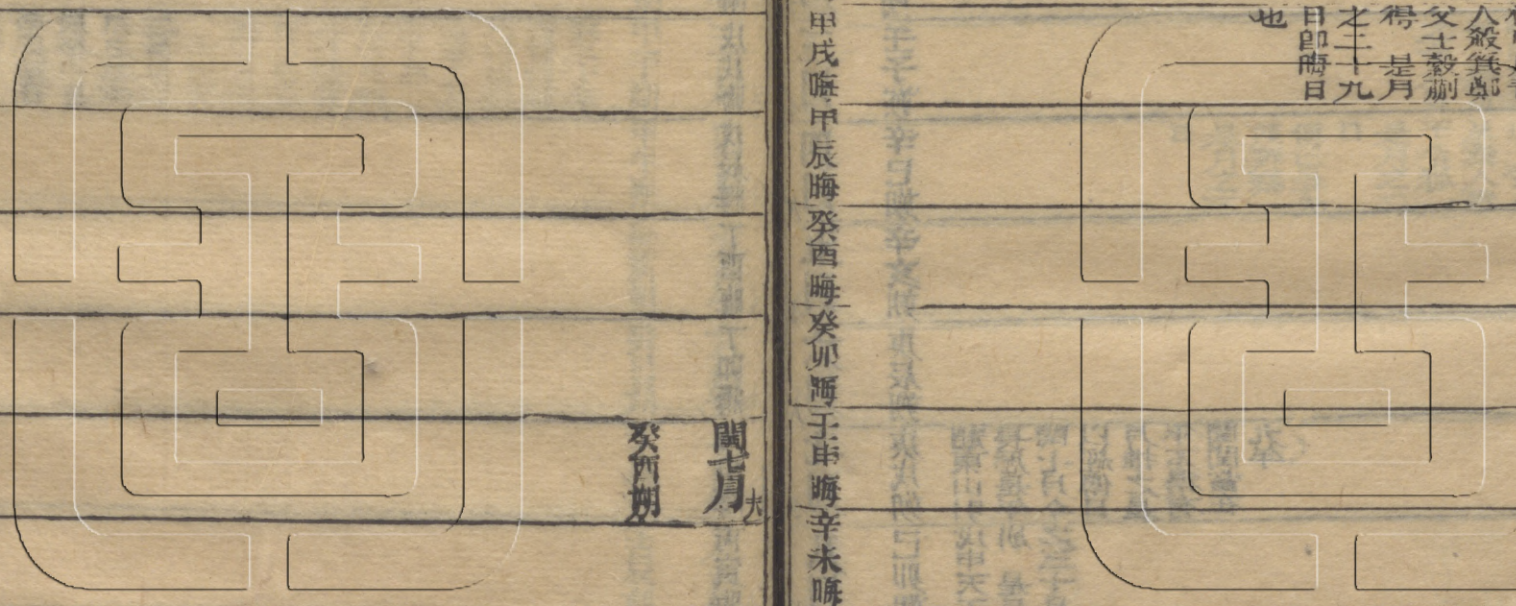 人殺箕鄭
父士縠蒯
得 是月
之二十九
日卽晦日
也
甲戌晦甲辰晦癸酉晦癸卯晦壬申晦辛未晦
閏七月大
癸酉朔